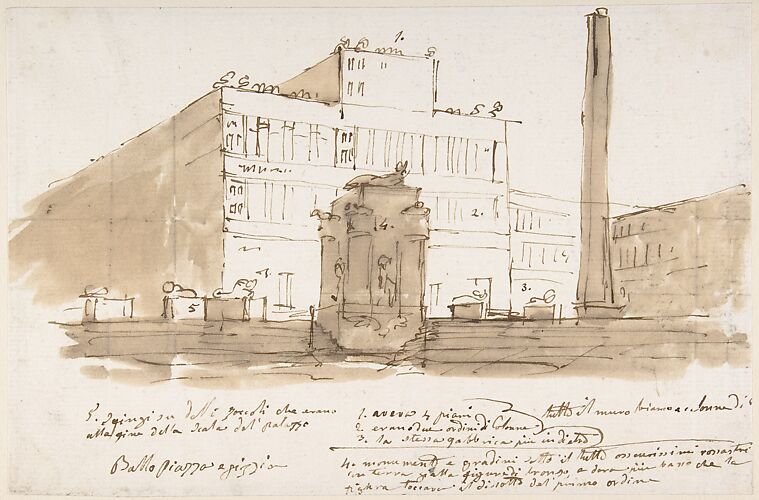 1.
2.
14.
3.
5
5. sginzi su delli zoccoli che erano
alla gine della scala del palazzo
Ballo Piazza egizzia
1. aveva 4 piani
2. erano due ordini di Colonne
3. la stessa gabbrica più indietro
tutto il muro bianco e colonne di
4. monumento e gradini tutto il tutto oscurissimi rossastri
in terra gialla gigure di bronzo, e dora più basso che la
figura toccava al disotto del primo ordine